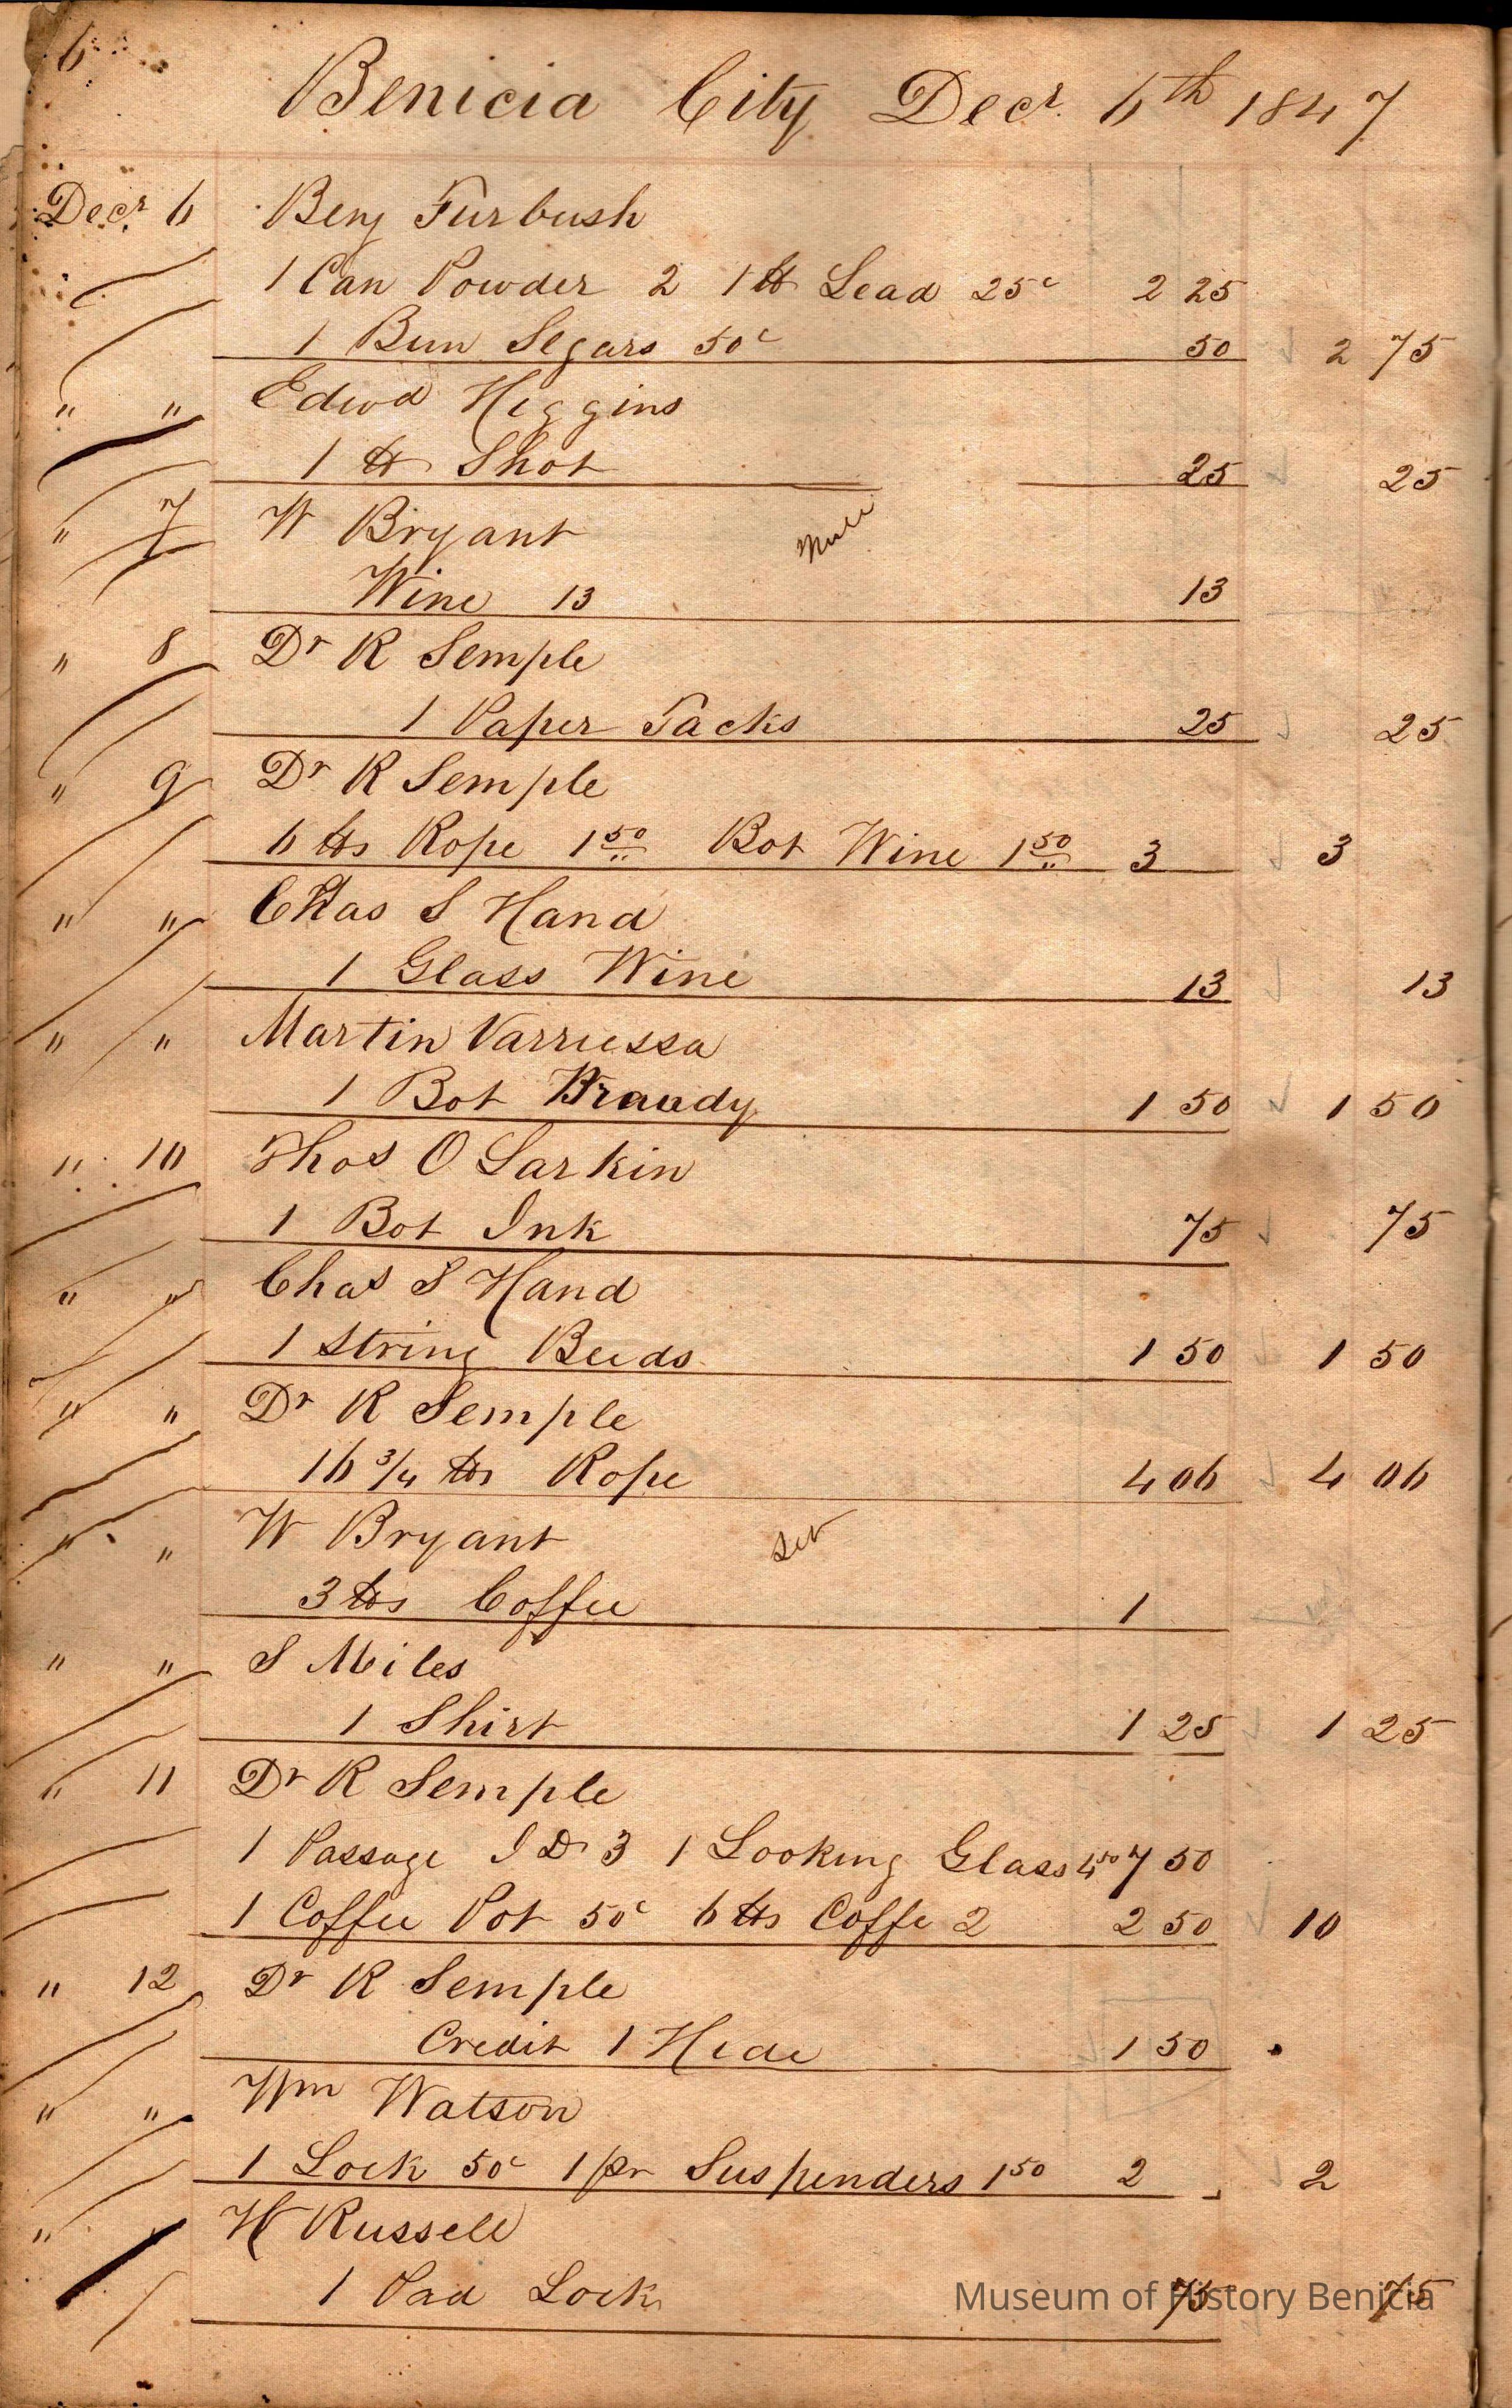 6
Benicia City Decr 6th 1847
Decr 6 Benj Furbush
1 Can Powder 2 1 lb Lead 25c 2 25
1 Bun Segars 50c 50 2 75
" " Edwd Higgins
1 lb Shot 25 25
" 7 W Bryant
Wine 13 13
" 8 Dr R Semple
1 Paper Tacks 25 25
" 9 Dr R Semple
6 lbs Rope 1 50 Bot Wine 1 50 3 3
" " Chas S Hand
1 Glass Wine 13 13
" " Martin Varrussa
1 Bot Brandy 1 50 1 50
" 10 Thos O Larkin
1 Bot Ink 75 75
" " Chas S Hand
1 String Beeds 1 50 1 50
" " Dr R Semple
16 3/4 lbs Rope 4 06 4 06
" " W Bryant
3 lbs Coffee 1
" " S Miles
1 Shirt 1 25 1 25
" 11 Dr R Semple
1 Passage I D 3 1 Looking Glass 4 50 7 50
1 Coffee Pot 50c 6 lbs Coffe 2 2 50 10
" 12 Dr R Semple
Credit 1 Hide 1 50
" " Wm Watson
1 Lock 50c 1 pr Suspenders 1 50 2 2
" " W Russell
1 Pad Lock 75 75
Museum of History Benicia